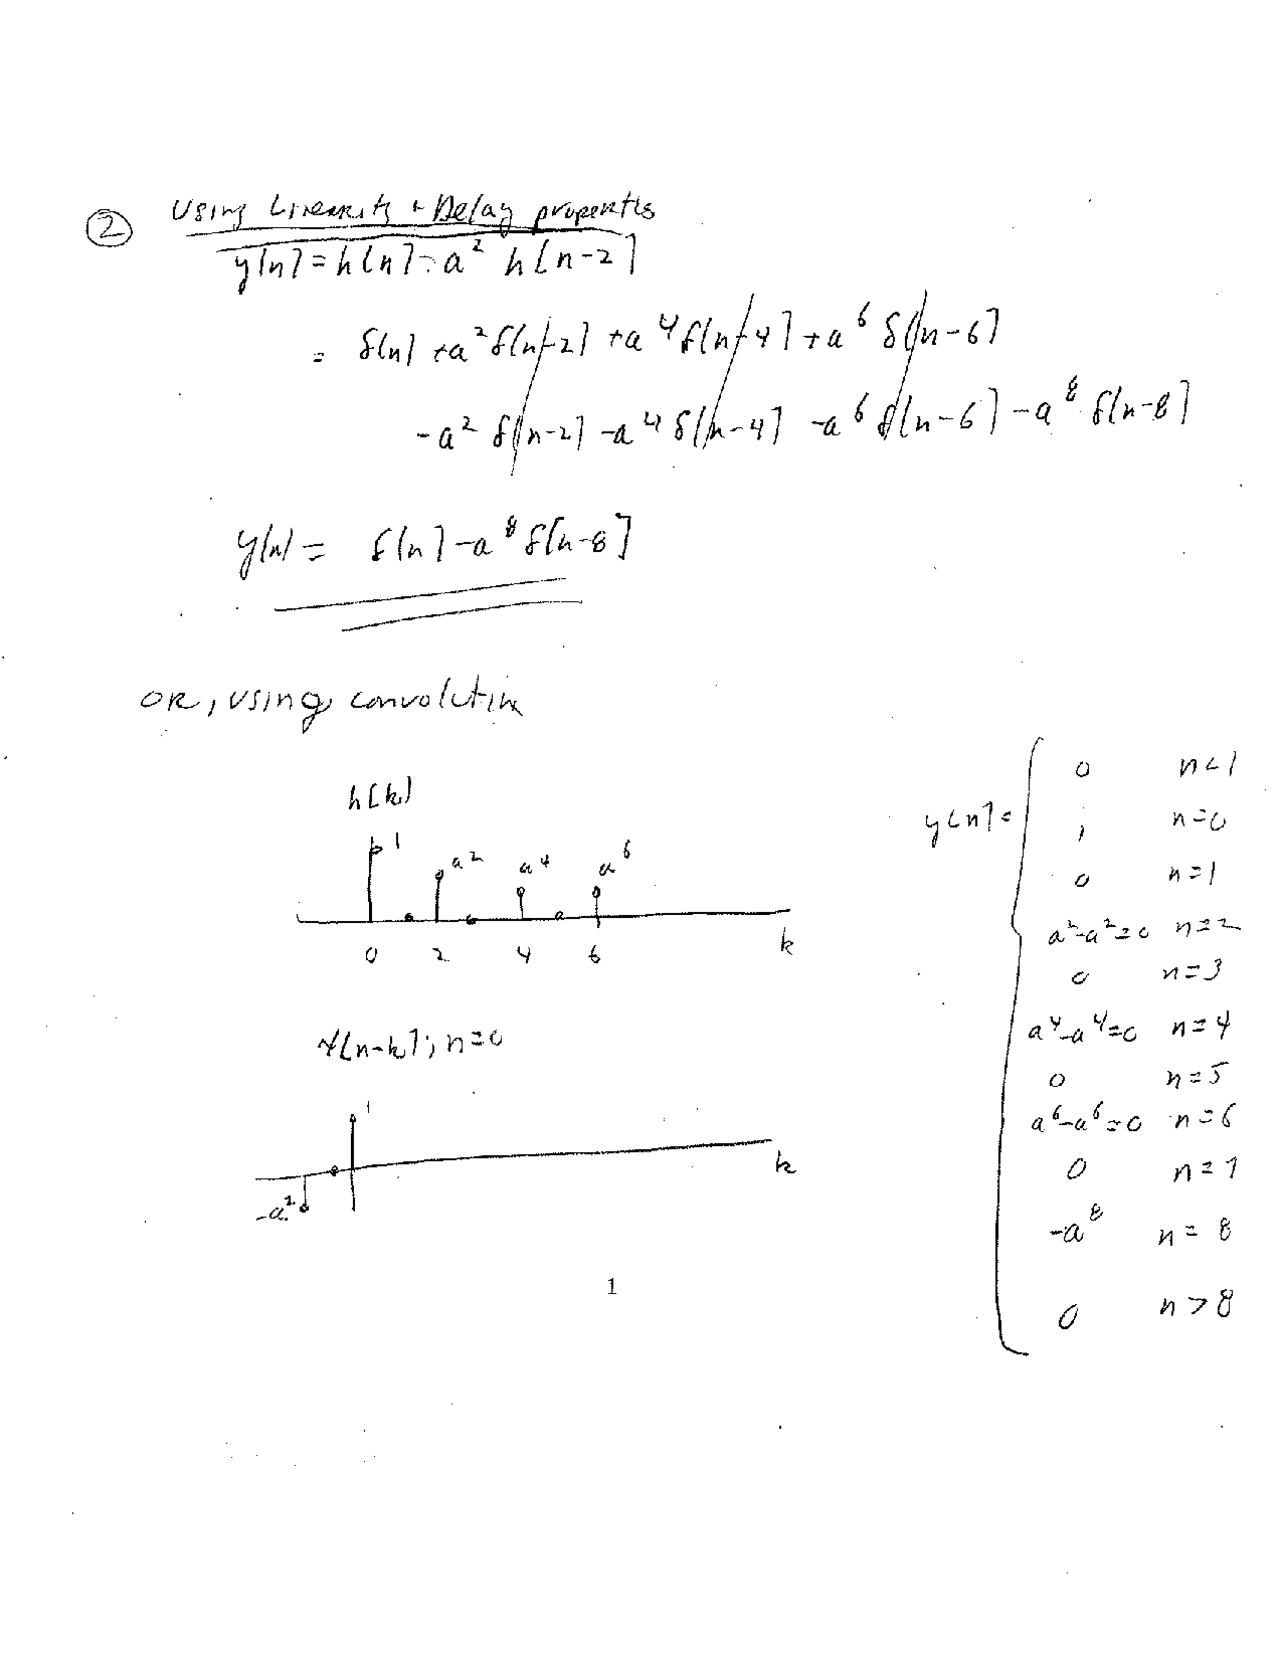 ② Using Linearity + Delay properties
y[n] = h[n] - a² h[n-2]
= δ[n] + a² δ[n-2] + a⁴ δ[n-4] + a⁶ δ[n-6]
- a² δ[n-2] - a⁴ δ[n-4] - a⁶ δ[n-6] - a⁸ δ[n-8]
y[n] = δ[n] - a⁸ δ[n-8]
OR, using convolution
h[k]
1 a² a⁴ a⁶
0 2 4 6 k
x[n-k]; n=0
1
-a² k
y[n] =
0 n<1
1 n=0
0 n=1
a²-a²=0 n=2
0 n=3
a⁴-a⁴=0 n=4
0 n=5
a⁶-a⁶=0 n=6
0 n=7
-a⁸ n=8
0 n>8
1